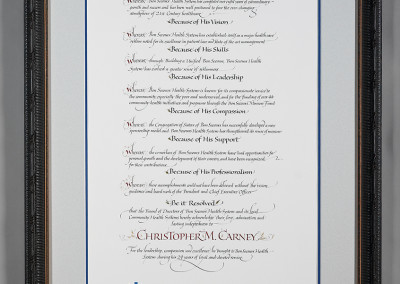 Whereas, Bon Secours Health System has completed our eight years of extraordinary
growth and success and has been well positioned to face the ever changing
atmosphere of 21st Century healthcare
Because of His Vision
Whereas, Bon Secours Health System has established itself as a major health care
Because of His Skills
Whereas, through Building a Unified Bon Secours, Bon Secours Health
System has
Because of His Leadership
Whereas, Bon Secours Health System is known for its compassionate service to
the community, especially the poor and underserved, and for the funding of
community health initiatives and programs through the Bon Secours Mission Fund
Because of His Compassion
Whereas, the Congregation of Sisters of Bon Secours has successfully developed a new
sponsorship model and Bon Secours Health System has strengthened its sense of mission
Because of His Support
Whereas, the co-workers of Bon Secours Health System have had opportunities for
personal growth and the development of their careers, and have been recognized
for their contributions
Because of His Professionalism
Whereas, these accomplishments could not have been achieved without the vision,
guidance and hard work of the President and Chief Executive Officer
Be it Resolved
that the Board of Directors of Bon Secours Health System and its Local
Community Health Systems hereby acknowledge their deep admiration and
lasting indebtedness to
Christopher M. Carney
For the leadership, compassion and excellence he brought to Bon Secours Health
System during his 28 years of loyal and devoted service